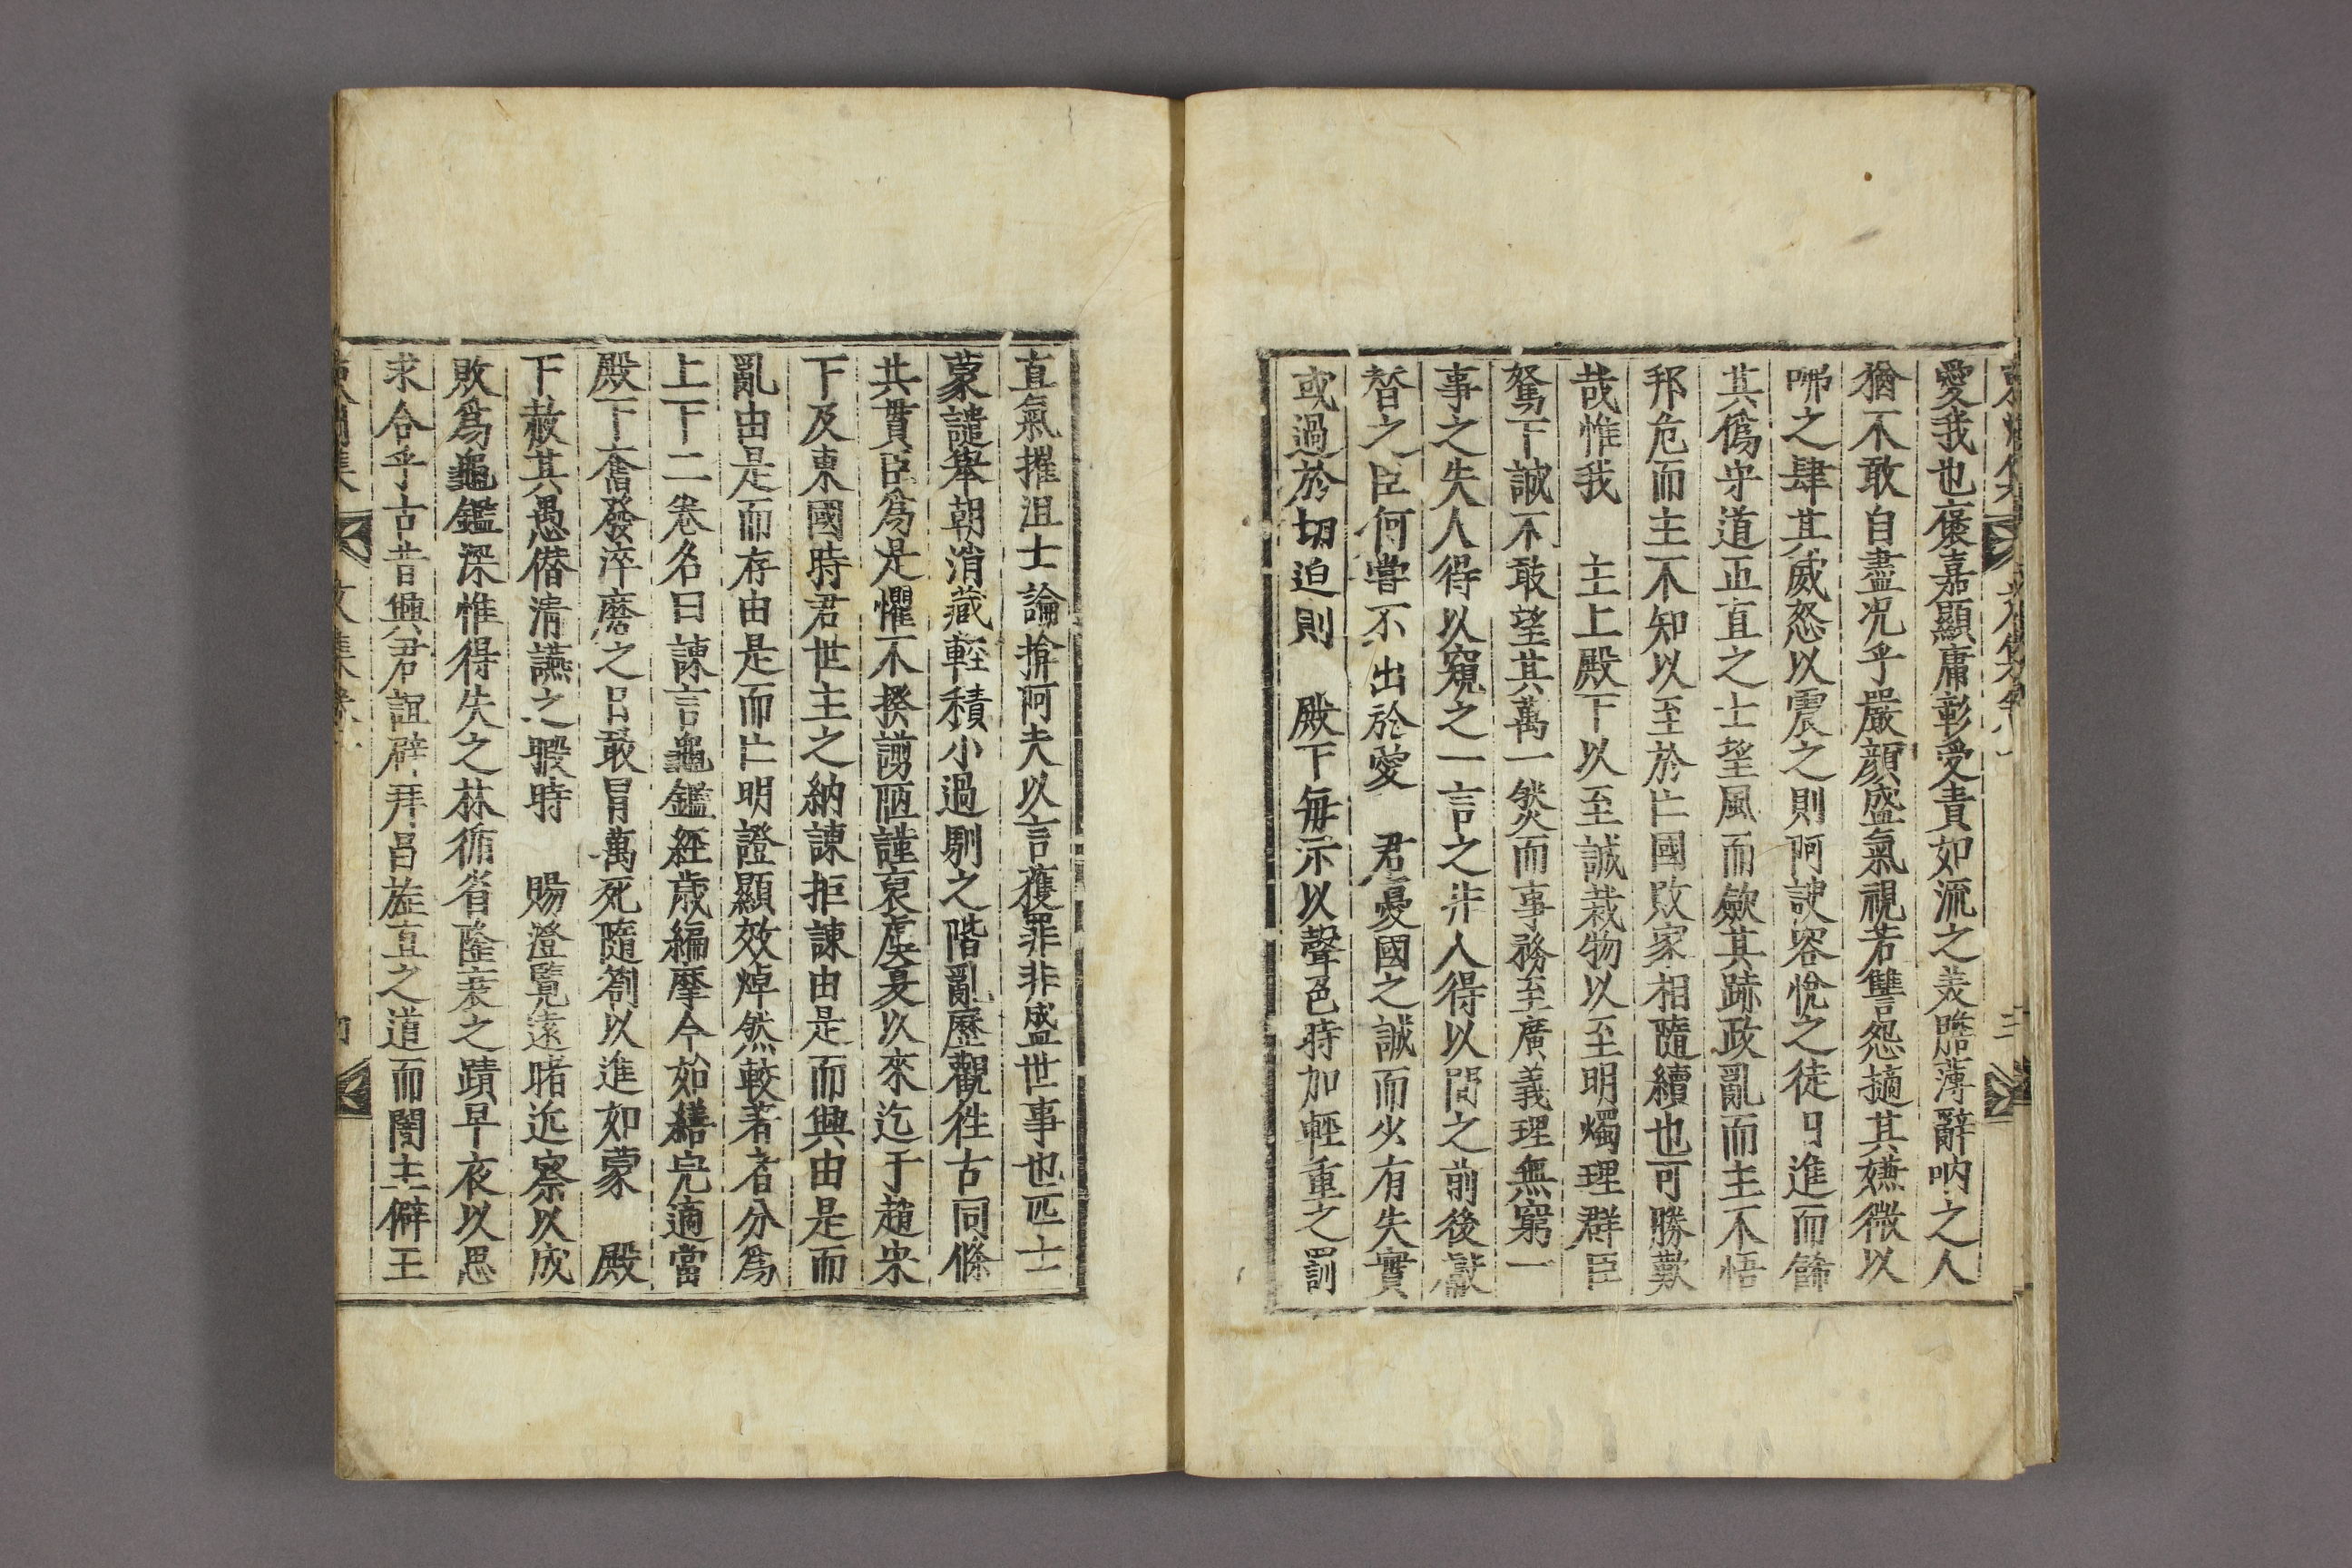 愛我也褒嘉顯庸彰受責如流之美膽薄辭吶之人
猶不敢自盡况乎嚴顔盛氣視若讐怨擿其嬚微以
咈之肆其威怒以震之則阿諛容悅之徒日進而餙
其僞守道正直之士望風而歛其跡政亂而主不悟
邦危而主不知以至於亡國敗家相隨續也可勝歎
哉惟我 主上殿下以至誠裁物以至明燭理群臣
駑下誠不敢望其萬一然而事務至廣義理無窮一
事之失人得以窺之一言之非人得以間之前後獻
替之臣何嘗不出於愛 君憂國之誠而少有失實
或過於切迫則 殿下每示以聲色時加輕重之罰
直氣摧沮士論揜阿夫以言獲罪非盛世事也匹士
蒙譴舉朝消藏輕積小過馴之階亂歷觀徃古同條
共貫臣爲是懼不揆謭陋謹裒虞夏以來迄于趙宋
下及東國時君世主之納諫拒諫由是而興由是而
亂由是而存由是而亡明證顯效焯然較著者分爲
上下二卷名曰諫言龜鑑經歲編摩今始繕完適當
殿下奮發淬磨之日敢冒萬死隨劄以進如蒙 殿
下赦其愚僭淸讌之暇時 賜澄覽遠睹近察以成
敗爲龜鑑深惟得失之林循省隆衰之蹟早夜以思
求合乎古昔興君誼辟拜昌旌直之道而闇主僻王